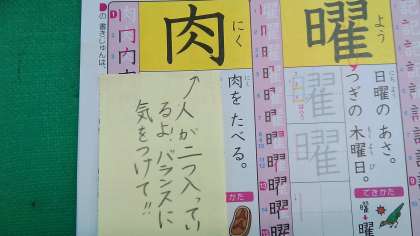 曜
よう
日曜の あさ。
にちよう
つぎの 木曜日。
もくようび
できかた
曜
曜
肉
にく
肉を たべる。
にく
かた
の 書きじゅんは、
↑人が二つ入ってい
るよ。バランスに
気をつけて!!